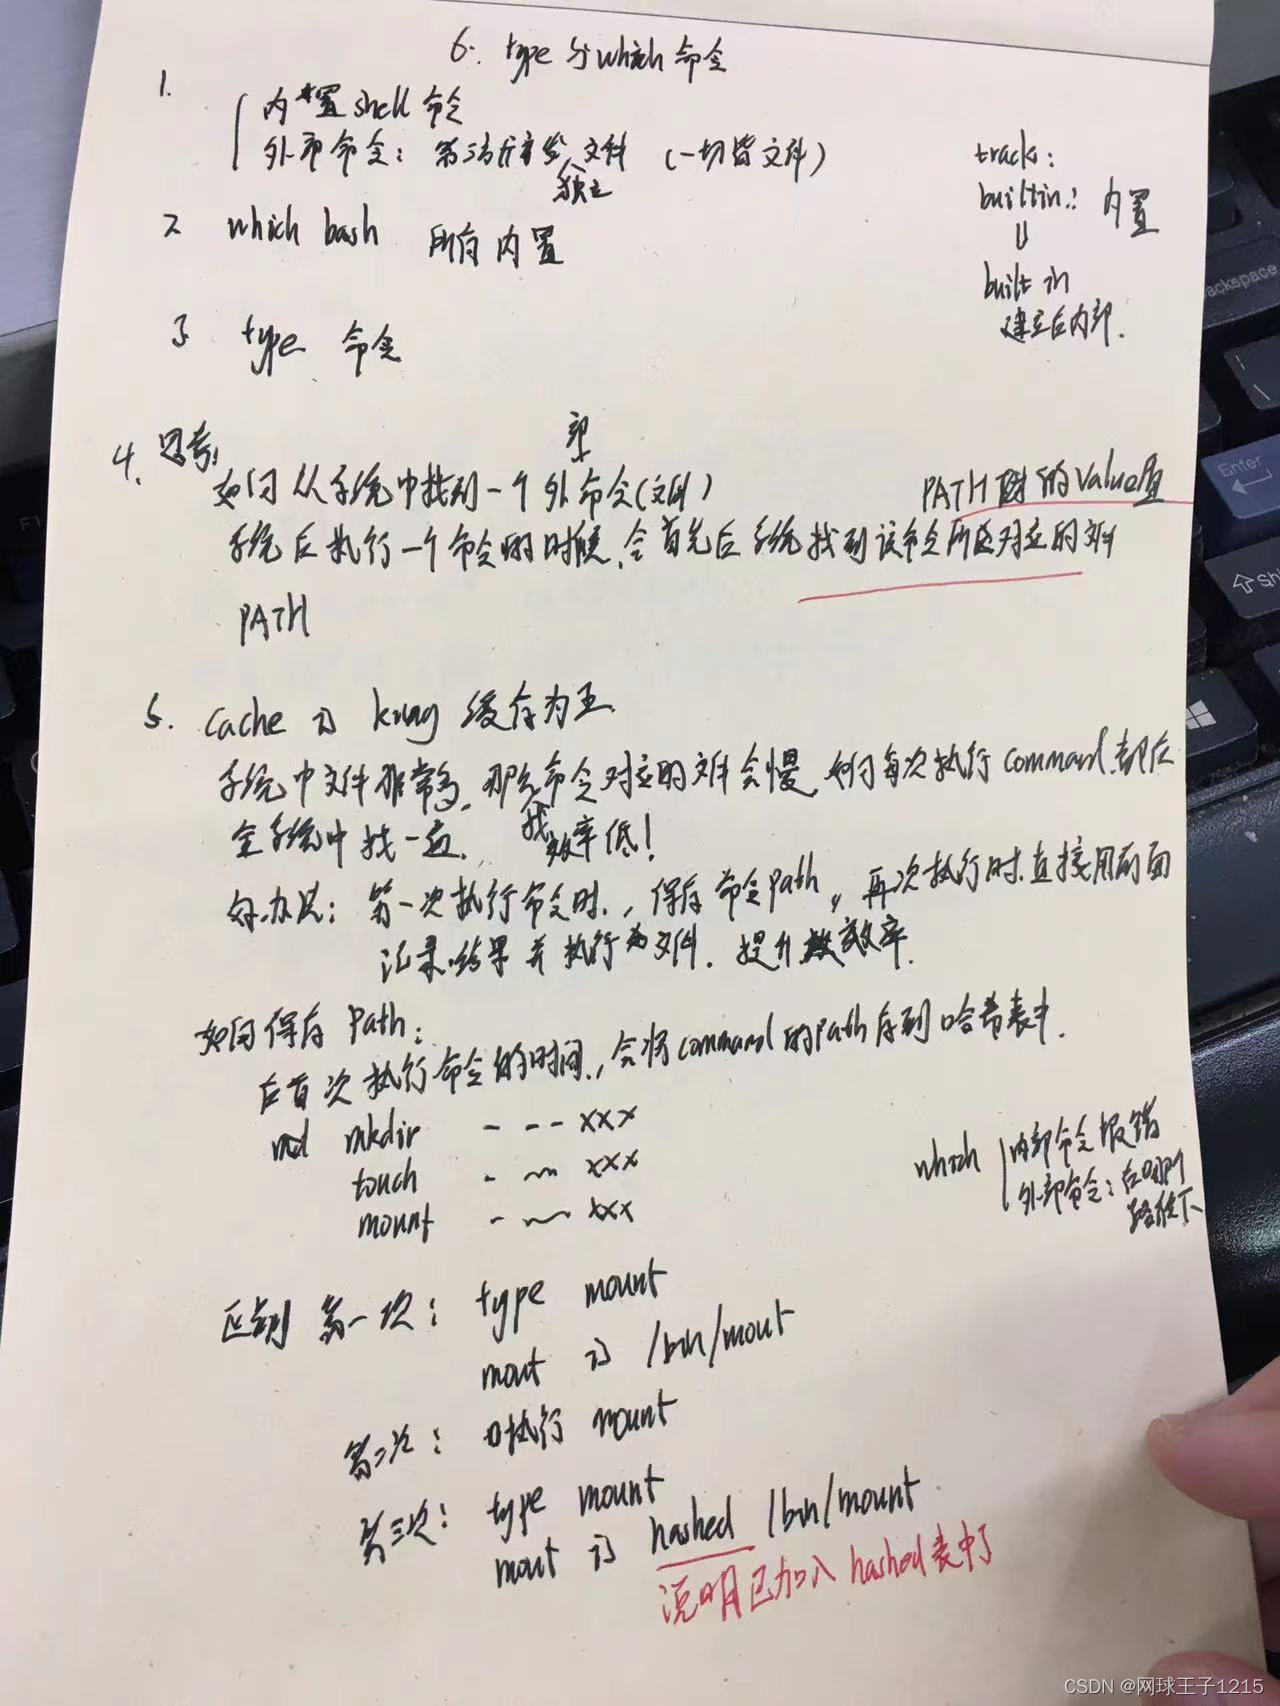 6. type 与 which 命令
1.
内置 shell 命令
外部命令: 第三方开发 独立 文件 (一切皆文件)
track:
builtin: 内置
⇓
built in
建立在内部.
2 which bash 所有内置
3 type 命令
4. 思考:
如何从系统中找到一个外部命令(文件)
PATH 的 Value值
系统在执行一个命令的时候, 会首先在系统找到该命令所对应的文件
PATH
5. cache is king 缓存为王.
系统中文件非常多, 那么找命令对应的文件会慢, 如何每次执行 command 都在
全系统中找一遍. 效率低!
好办法: 第一次执行命令时, 保存命令 path, 再次执行时直接用前面
记录结果并执行文件. 提升效率.
如何保存 Path:
在首次执行命令的时间, 会将 command 的 path 存到哈希表中.
mkdir - - - xxx
touch - ~ xxx
mount - ~ xxx
which
内部命令报错
外部命令: 在哪个
路径下
区别 第一次: type mount
mout is /bin/mout
第二次: 执行 mount
第三次: type mount
mout is hashed /bin/mount
说明已加入 hashed 表中了
ackspace
Enter
Shi
F1
CSDN @网球王子1215